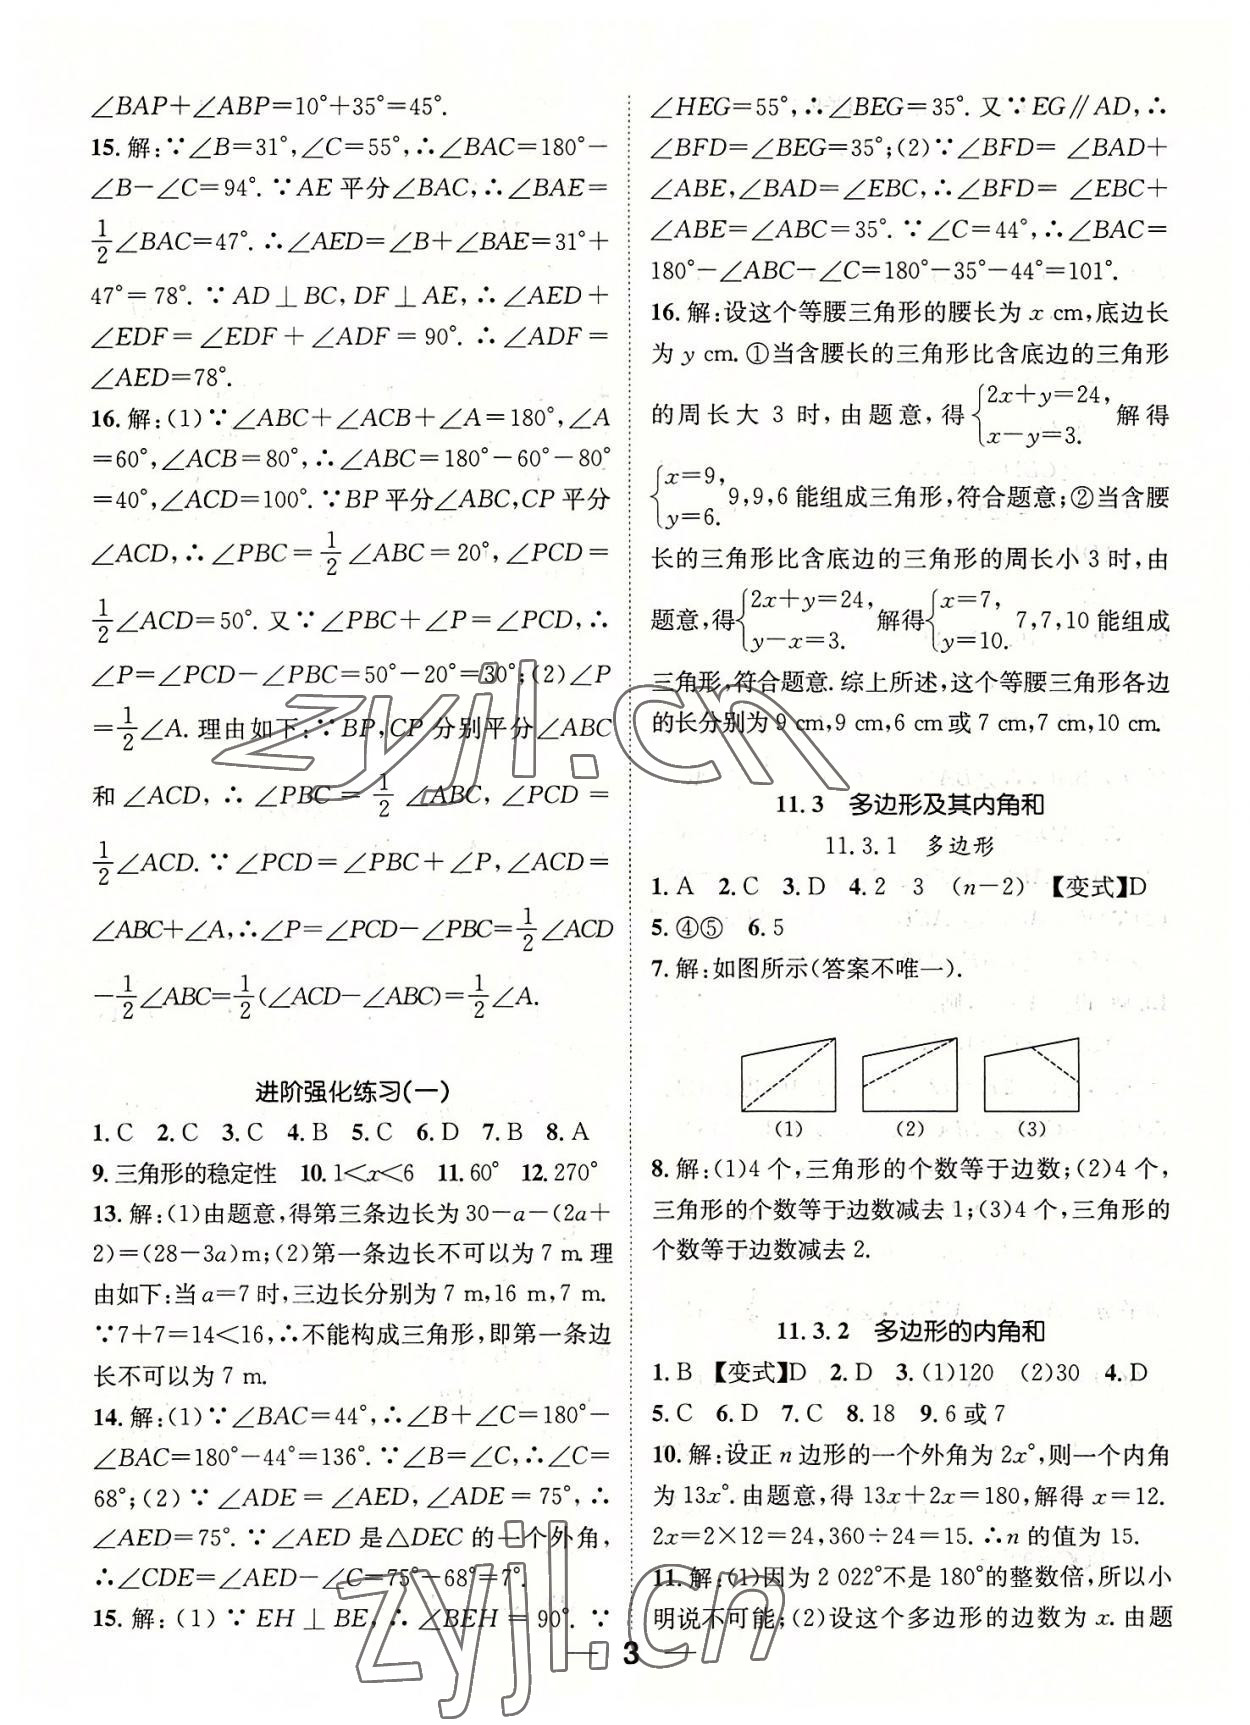 ∠BAP+∠ABP=10°+35°=45°.
15.解:∵∠B=31°,∠C=55°,∴∠BAC=180°-
∠B-∠C=94°.∵AE平分∠BAC,∴∠BAE=
1/2∠BAC=47°.∴∠AED=∠B+∠BAE=31°+
47°=78°.∵AD⊥BC,DF⊥AE,∴∠AED+
∠EDF=∠EDF+∠ADF=90°.∴∠ADF=
∠AED=78°.
16.解:(1)∵∠ABC+∠ACB+∠A=180°,∠A
=60°,∠ACB=80°,∴∠ABC=180°-60°-80°
=40°,∠ACD=100°.∵BP平分∠ABC,CP平分
∠ACD,∴∠PBC=1/2∠ABC=20°,∠PCD=
1/2∠ACD=50°.又∵∠PBC+∠P=∠PCD,∴
∠P=∠PCD-∠PBC=50°-20°=30°;(2)∠P
=1/2∠A.理由如下:∵BP,CP分别平分∠ABC
和∠ACD,∴∠PBC=1/2∠ABC,∠PCD=
1/2∠ACD.∵∠PCD=∠PBC+∠P,∠ACD=
∠ABC+∠A,∴∠P=∠PCD-∠PBC=1/2∠ACD
-1/2∠ABC=1/2(∠ACD-∠ABC)=1/2∠A.
进阶强化练习(一)
1.C 2.C 3.C 4.B 5.C 6.D 7.B 8.A
9.三角形的稳定性 10.1<x<6 11.60° 12.270°
13.解:(1)由题意,得第三条边长为30-a-(2a+
2)=(28-3a)m;(2)第一条边长不可以为7 m.理
由如下:当a=7时,三边长分别为7 m,16 m,7 m.
∵7+7=14<16,∴不能构成三角形,即第一条边
长不可以为7 m.
14.解:(1)∵∠BAC=44°,∴∠B+∠C=180°-
∠BAC=180°-44°=136°.∵∠B=∠C,∴∠C=
68°;(2)∵∠ADE=∠AED,∠ADE=75°,∴
∠AED=75°.∵∠AED是△DEC的一个外角,
∴∠CDE=∠AED-∠C=75°-68°=7°.
15.解:(1)∵EH⊥BE,∴∠BEH=90°.∵
∠HEG=55°,∴∠BEG=35°.又∵EG∥AD,∴
∠BFD=∠BEG=35°;(2)∵∠BFD=∠BAD+
∠ABE,∠BAD=∠EBC,∴∠BFD=∠EBC+
∠ABE=∠ABC=35°.∵∠C=44°,∴∠BAC=
180°-∠ABC-∠C=180°-35°-44°=101°.
16.解:设这个等腰三角形的腰长为x cm,底边长
为y cm.①当含腰长的三角形比含底边的三角形
的周长大3时,由题意,得{2x+y=24, x-y=3. 解得
{x=9, y=6. 9,9,6能组成三角形,符合题意;②当含腰
长的三角形比含底边的三角形的周长小3时,由
题意,得{2x+y=24, y-x=3. 解得{x=7, y=10. 7,7,10能组成
三角形,符合题意.综上所述,这个等腰三角形各边
的长分别为9 cm,9 cm,6 cm或7 cm,7 cm,10 cm.
11.3 多边形及其内角和
11.3.1 多边形
1.A 2.C 3.D 4.2 3 (n-2) 【变式】D
5.④⑤ 6.5
7.解:如图所示(答案不唯一).
(1) (2) (3)
8.解:(1)4个,三角形的个数等于边数;(2)4个,
三角形的个数等于边数减去1;(3)4个,三角形的
个数等于边数减去2.
11.3.2 多边形的内角和
1.B 【变式】D 2.D 3.(1)120 (2)30 4.D
5.C 6.D 7.C 8.18 9.6或7
10.解:设正n边形的一个外角为2x°,则一个内角
为13x°.由题意,得13x+2x=180,解得x=12.
2x=2×12=24,360÷24=15.∴n的值为15.
11.解:(1)因为2 022°不是180°的整数倍,所以小
明说不可能;(2)设这个多边形的边数为x.由题
3
zyjl.cn
zyjl.cn